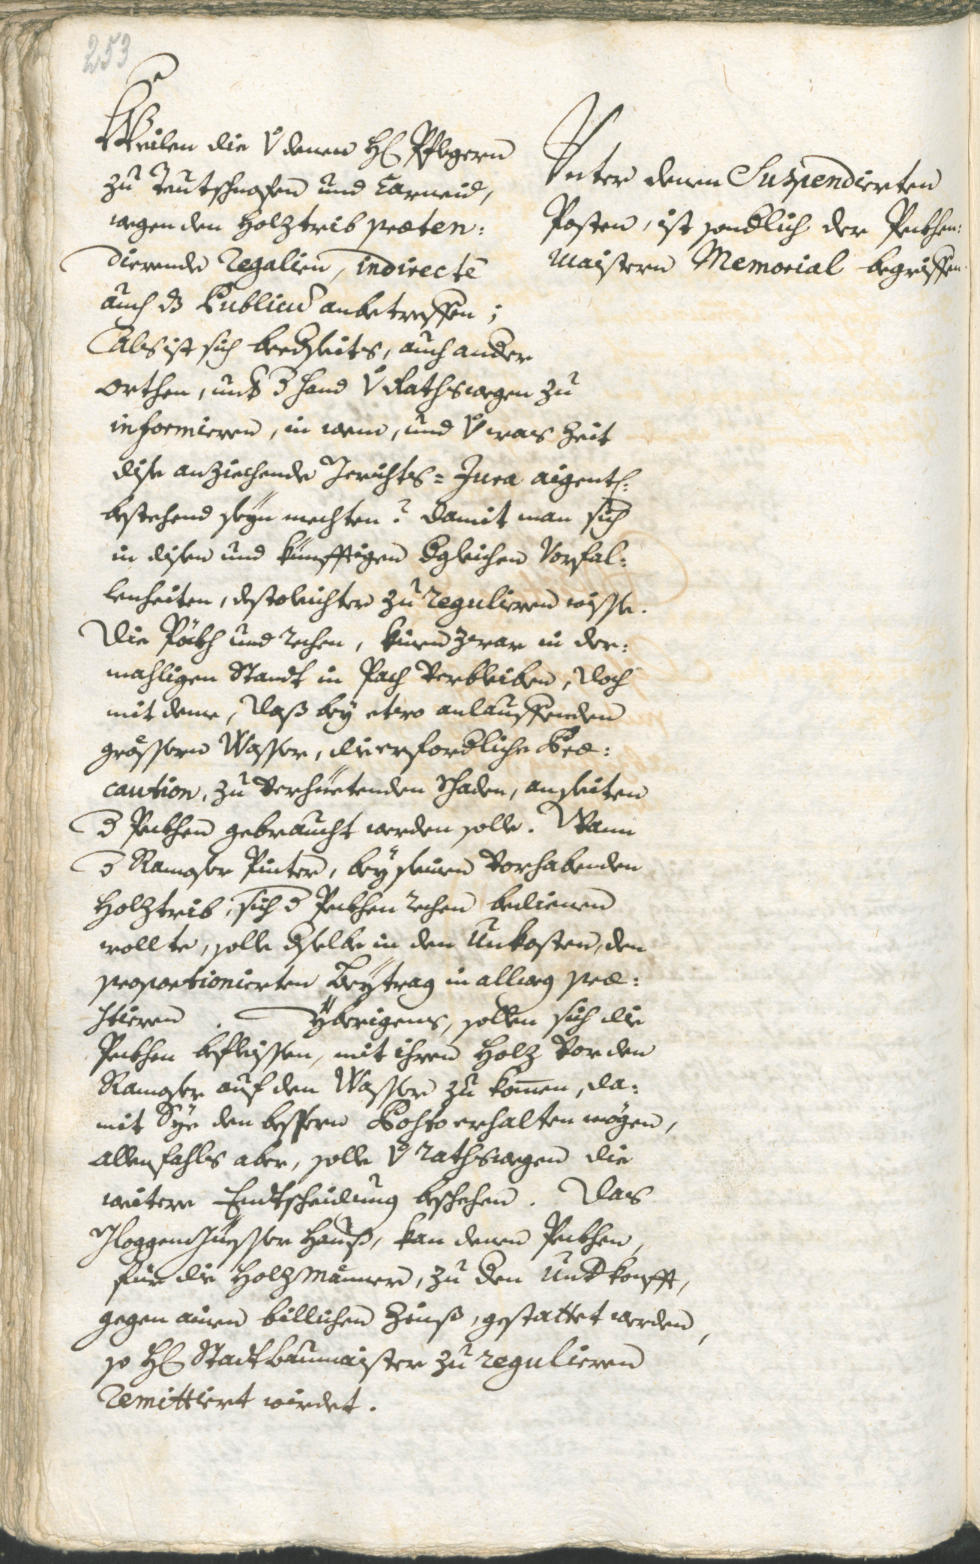 253
Weilen die v̊ denen H: Pflegern
zu Teutschnofen und Carneid,
wegen den Holztrib præten:
dierende Regalien, indirecte
auch dz Publicũ anbetreffen;
Als ist sich beederseits, auch ander
orthen, und Hand v̊ Rathswegen zu
informieren, in wem, und v̊ was Zeit
dise anziechende Gerichts=Jura aigentl:
bestehend seyn mechten? damit man sich
in disen und künfftigen dgleichen Vorfal:
lenheiten, destoleichter zu regulieren wisse.
Die Päch und rechen, kinen zwar in der:
mahligen Standt in Pach verbleiben, doch
mit deme, daß bey etwo anlauffenden
grössern Wasser, die erfordliche Præ:
caution, zu verhüetenden Schaden, an seiten
d Pekhen gebraucht werden solle. Wann
d Ramoser Pinter, bey seinen vorhabenden
Holztrib, sich d Pekhen rechen bedienen
wollte, solle dselbe in den Unkosten, den
proportionierten Beytrag in allweg præ:
stieren. Yberigens, sollen sich die
Pekhen befleissen, mit ihren Holz vor den
Ramoser auf den Wasser zu kom̄en, da:
mit Sye den bessern Posto erhalten mögen,
allenfahls aber, solle v̊ rathswegen die
weitere Endtscheidung beschehen. Das
Hauß, kan denen Pekhen,
für die Holzmänner, zu den Undkonfft,
gegen ainen billichen Zinß, gestattet werden,
so H: Stadtbaumaister zu regulieren
remittiert wirdet.
Unter denen Suspendierten
Posten, ist sondlich der Pekhen:
maistern Memorial begriffen.